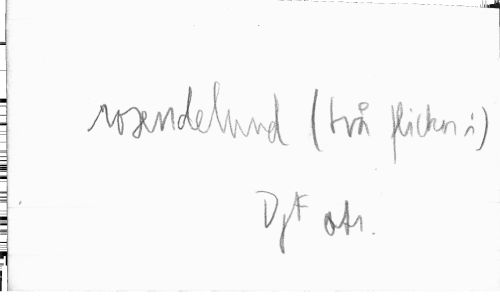 rosendelund (två flickor i)
DgF otr.